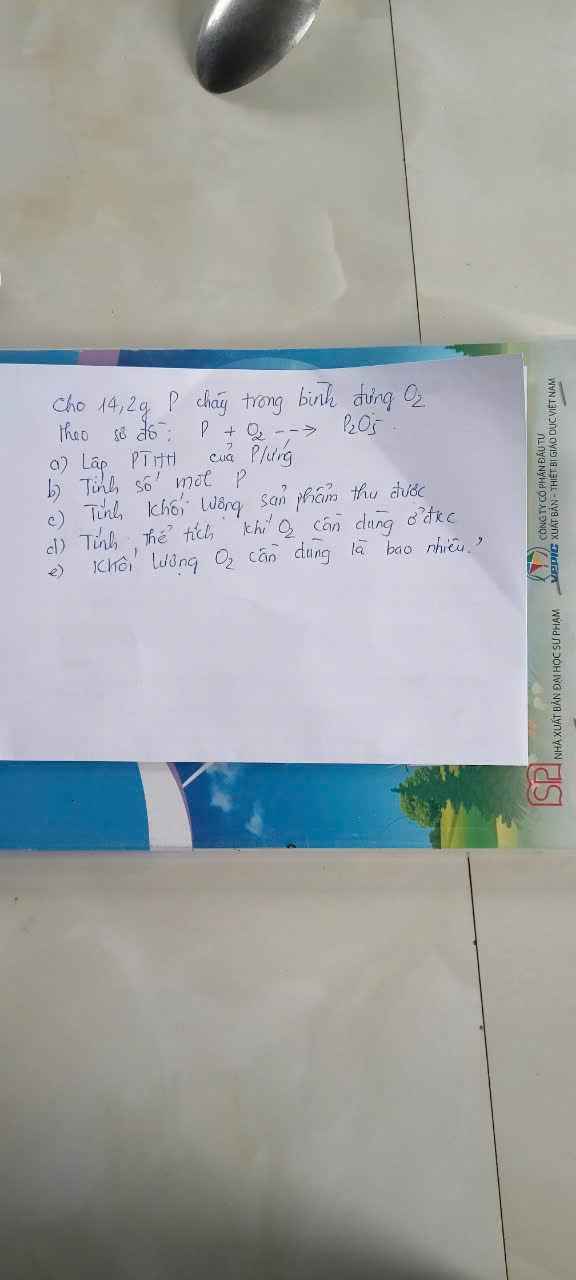 Cho 14,2g P cháy trong bình đựng O2
theo sơ đồ: P + O2 ---> P2O5.
a) Lập PTHH của P/ứng
b) Tính số mol P
c) Tính khối lượng sản phẩm thu được
d) Tính thể tích khí O2 cần dùng ở đkc
e) Khối lượng O2 cần dùng là bao nhiêu?
CÔNG TY CỔ PHẦN ĐẦU TƯ
XUẤT BẢN - THIẾT BỊ GIÁO DỤC VIỆT NAM
VEPIC
NHÀ XUẤT BẢN ĐẠI HỌC SƯ PHẠM
SP